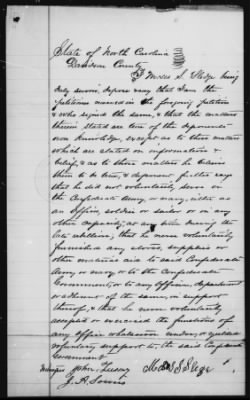 State of North Carolina
Davidson County
I Moses S. Sledge being
duly sworn, depose & say that I am the
petitioner named in the foregoing petition
& who signed the same, & that the matters
therein stated are true of the deponents
own knowledge, except as to those matters
which are stated on information &
belief, & as to those matters he believes
them to be true, & deponent further says
that he did not voluntarily serve in
the Confederate Army or navy, either as
an officer, soldier or sailor or in any
other capacity, at any time during the
late rebellion, that he never voluntarily
furnished any stores, supplies or
other material aid to said Confederate
Army or navy or to the Confederate
Government, or to any officer, department
or adherent of the same, in support
thereof, & that he never voluntarily
accepted or exercised the functions of
any office whatsoever under, or yielded
voluntary support to, the said Confederate
Government
Witnesses John
J. A. Sowers